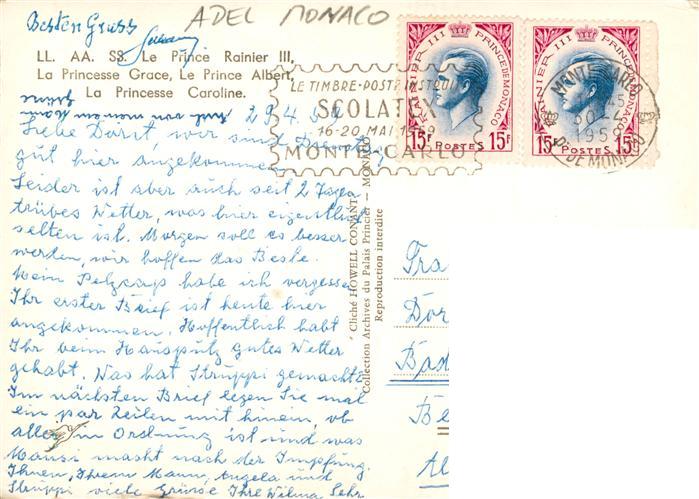 ADEL MONACO
Besten Gruss
LL. AA. SS. Le Prince Rainier III,
La Princesse Grace, Le Prince Albert,
La Princesse Caroline.
RAINIER III PRINCE DE MONACO
15F POSTES 15F
RAINIER III PRINCE DE MONACO
15F POSTES 15F
LE TIMBRE-POSTE INSTRUIT
SCOLATEX
16-20 MAI 1959
MONTE-CARLO
MONTE-CARLO
1959
PTE DE MONACO
29.4.59
Liebe Dorit, wir sind Dienstag
gut hier angekommen.
Leider ist aber auch seit 2 Tagen
trübes Wetter, was hier eigentlich
selten ist. Morgen soll es besser
werden, wir hoffen das Beste.
Mein Pelzcap habe ich vergessen
Ihr erster Brief ist heute hier
angekommen. Hoffentlich habt
Ihr beim Hausputz gutes Wetter
gehabt. Was hat Struppi gemacht?
Im nächsten Brief legen Sie mal
ein par Zeilen mit hinein, ob
alles in Ordnung ist und was
Mausi macht nach der Impfung.
Ihnen, Ihrem Mann, Angela und
Struppi viele Grüsse Ihre Wilma Sehr
Cliché HOWELL CONANT
Collection Archives du Palais Princier - MONACO
Reproduction interdite
Fra
Dor
Bad
Be
Al